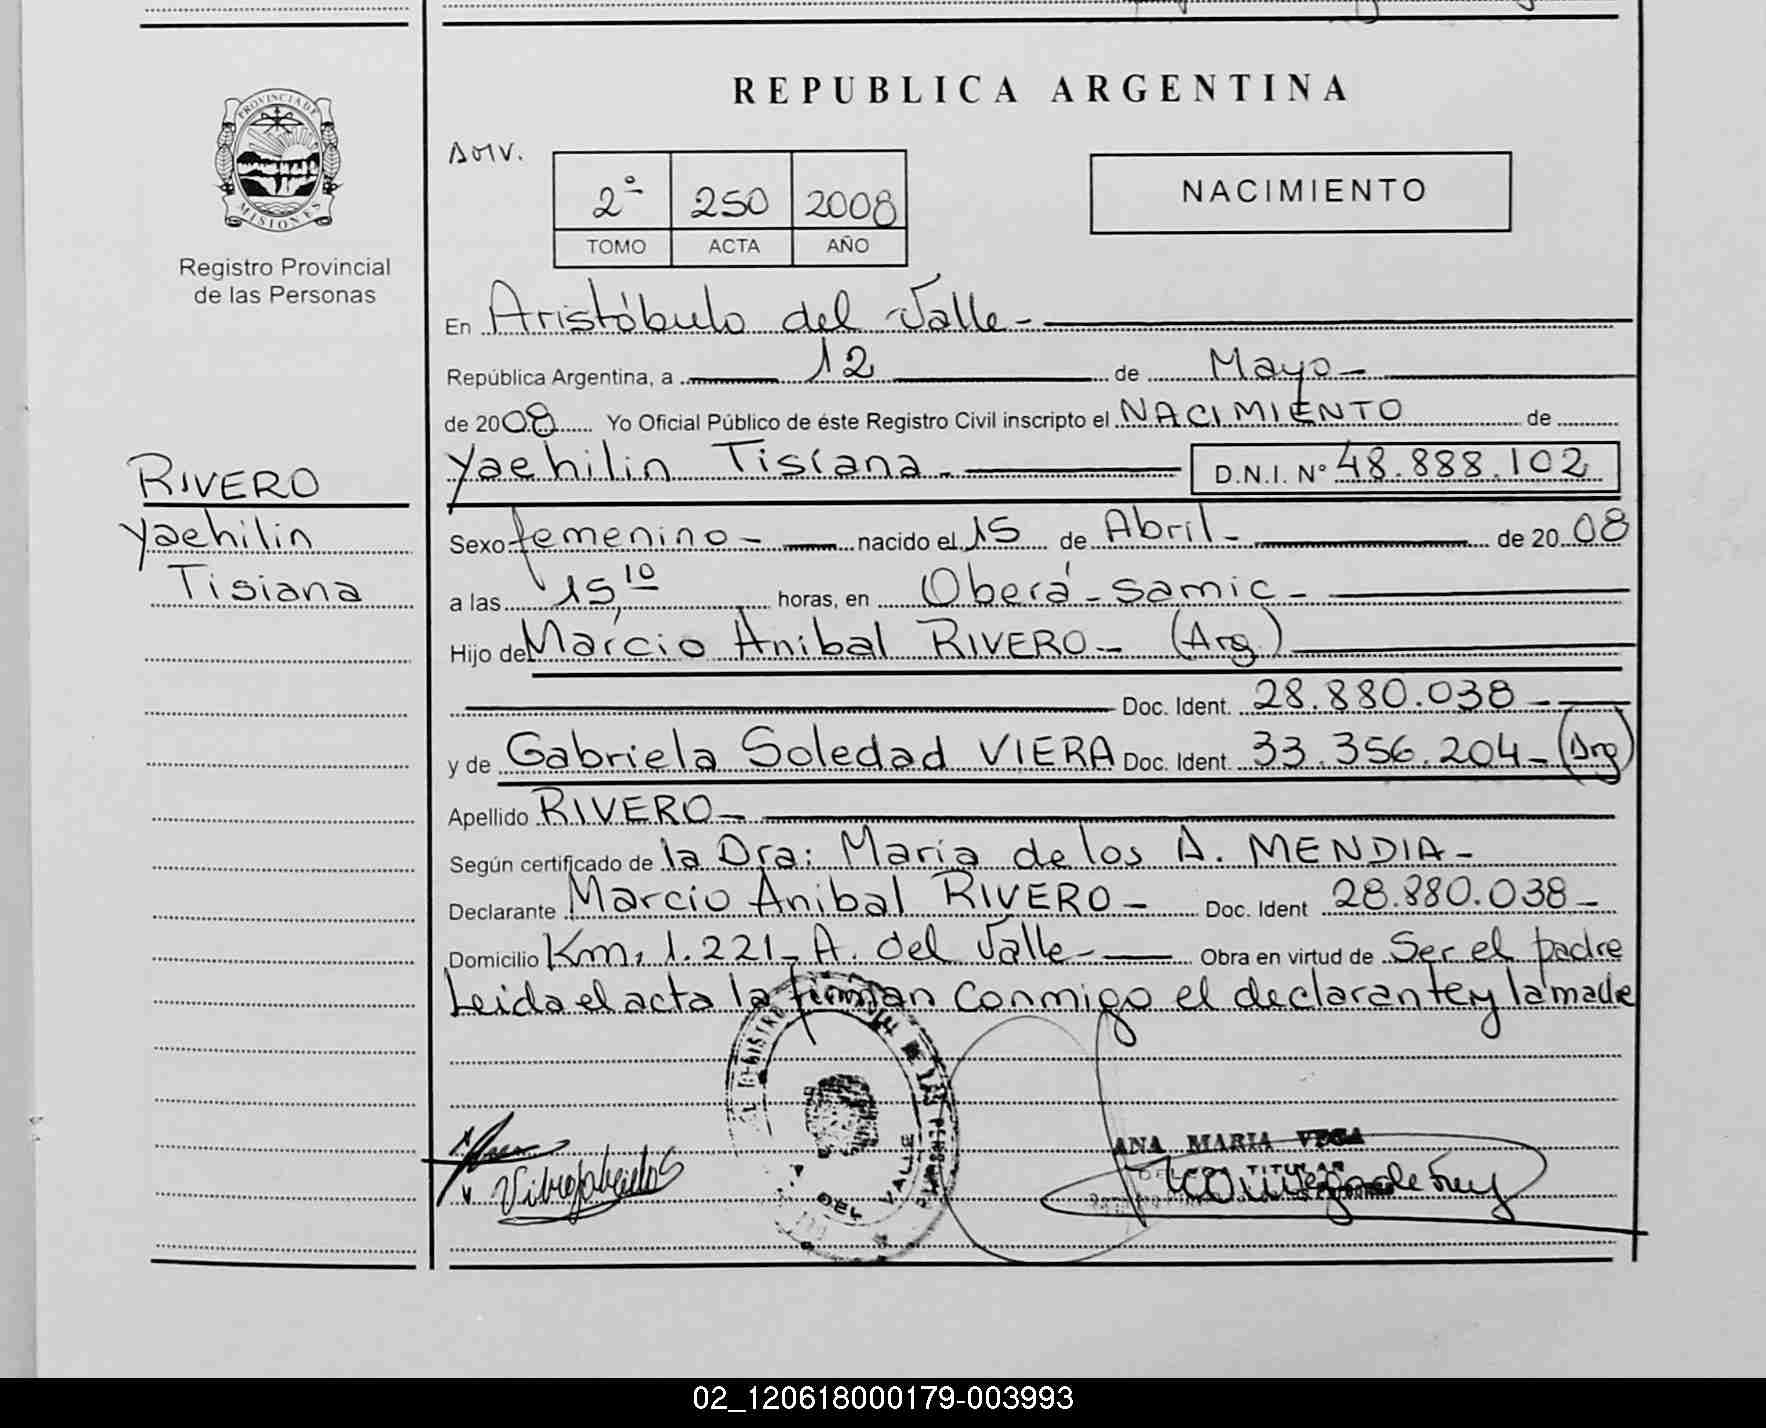 REPUBLICA ARGENTINA
PROVINCIA DE
MISIONES
Registro Provincial
de las Personas
2º 250 2008
TOMO ACTA AÑO
NACIMIENTO
En Aristóbulo del Valle-
República Argentina, a 12 de Mayo-
de 2008 Yo Oficial Público de éste Registro Civil inscripto el NACIMIENTO de
RIVERO
Yaehilin
Tisiana
Yaehilin Tisiana- D.N.I. Nº 48.888.102
Sexo femenino- nacido el 15 de Abril- de 2008
a las 15,10 horas, en Oberá-samic-
Hijo de Marcio Anibal RIVERO- (Arg.)
Doc. Ident. 28.880.038-
y de Gabriela Soledad VIERA Doc. Ident. 33.356.204-(Arg)
Apellido RIVERO-
Según certificado de la Dra: Maria de los A. MENDIA-
Declarante Marcio Anibal RIVERO- Doc. Ident 28.880.038-
Domicilio Km, 1.221, A. del Valle- Obra en virtud de Ser el padre
Leida el acta la firman conmigo el declarante y la madre
ANA MARIA VEGA
TITULAR
DEL VALLE
02_120618000179-003993